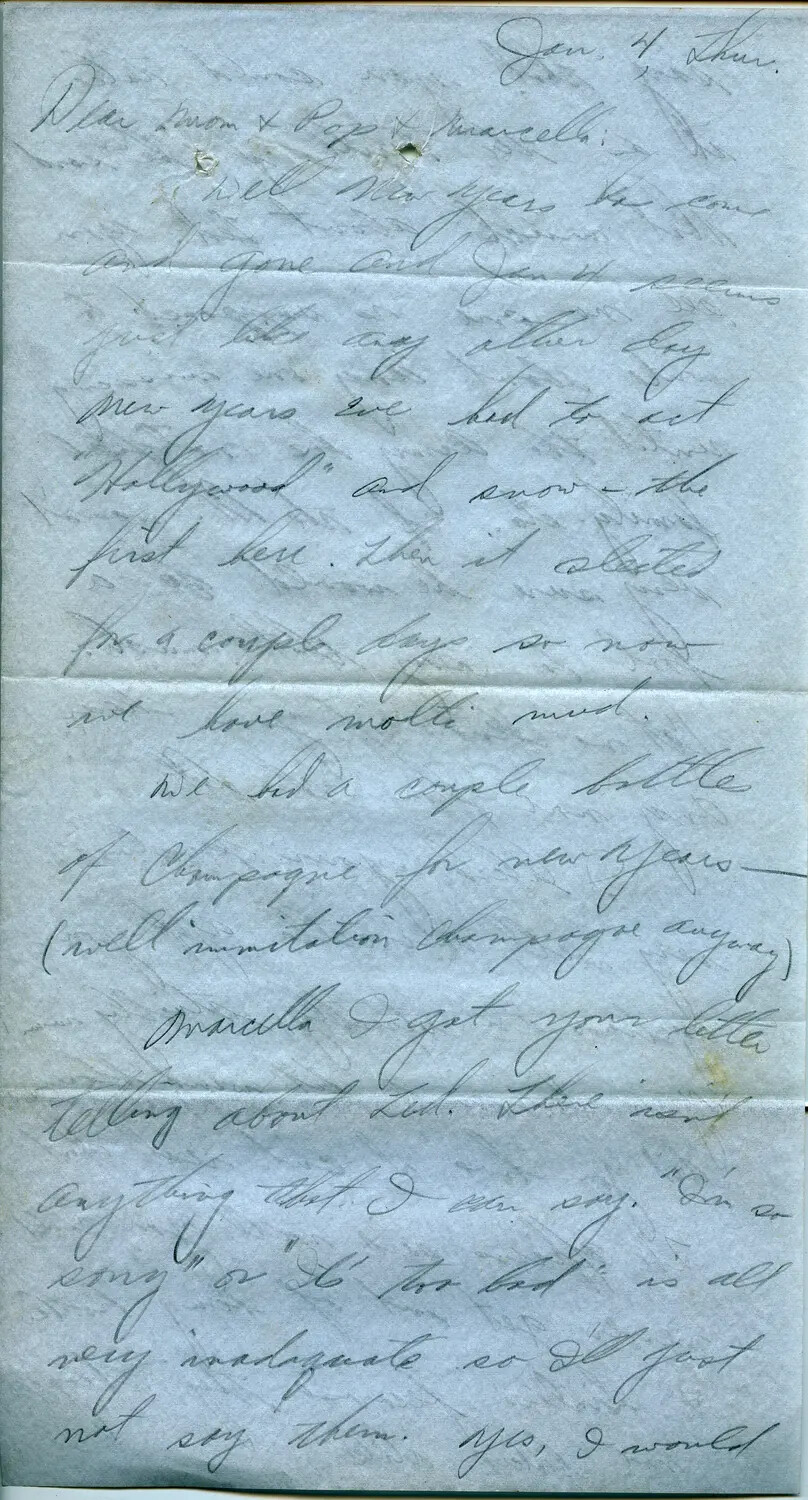 Jan. 4, Thur.
Dear Mom & Pop & Marcella:
Well New Years has come
and gone and Jan 4 seems
just like any other day
New Years Eve had to act
"Hollywood" and snow - the
first here. Then it sleeted
for a couple days so now
we have molti mud.
We had a couple bottles
of Champagne for New Years—
(well immitation Champagne anyway)
Marcella I got your letter
telling about Ted. There isn't
anything that I can say. "I'm so
sorry" or "It's too bad" is all
very inadaquate so I'll just
not say them. Yes, I would